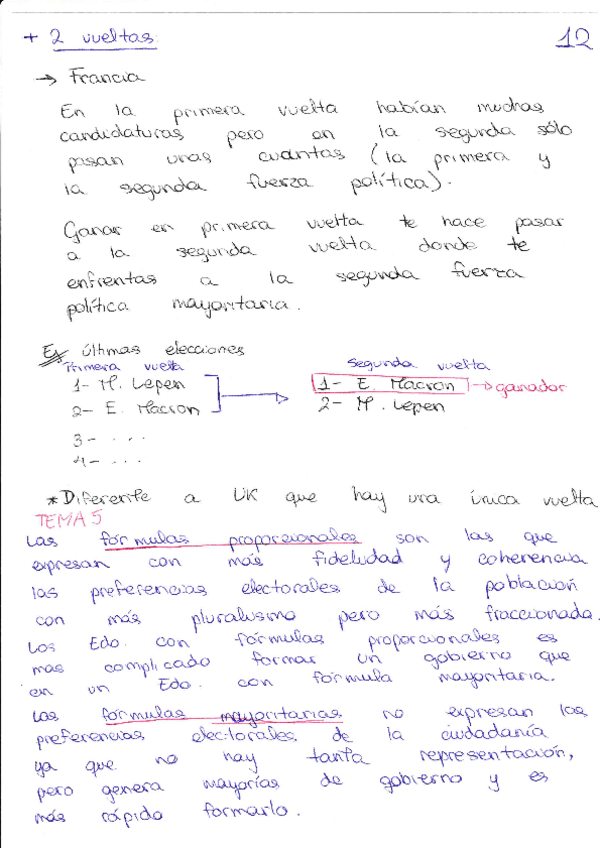 + 2 vueltas: 12
→ Francia
En la primera vuelta habían muchas
candidaturas pero en la segunda sólo
pasan unas cuantas (la primera y
la segunda fuerza política).
Ganar en primera vuelta te hace pasar
a la segunda vuelta donde te
enfrentas a la segunda fuerza
política mayoritaria.
Ex últimas elecciones
Primera vuelta
1- M. Lepen
2- E. Macron
3- ...
4- ...
Segunda vuelta
1- E. Macron → ganador
2- M. Lepen
*Diferente a UK que hay una única vuelta
TEMA 5
Las fórmulas proporcionales son las que
expresan con más fidelidad y coherencia
las preferencias electorales de la población
con más pluralismo pero más fraccionada.
Los Edo. con fórmulas proporcionales es
más complicado formar un gobierno que
en un Edo. con fórmula mayoritaria.
Las fórmulas mayoritarias no expresan las
preferencias electorales de la ciudadanía
ya que no hay tanta representación,
pero genera mayorías de gobierno y es
más rápido formarlo.